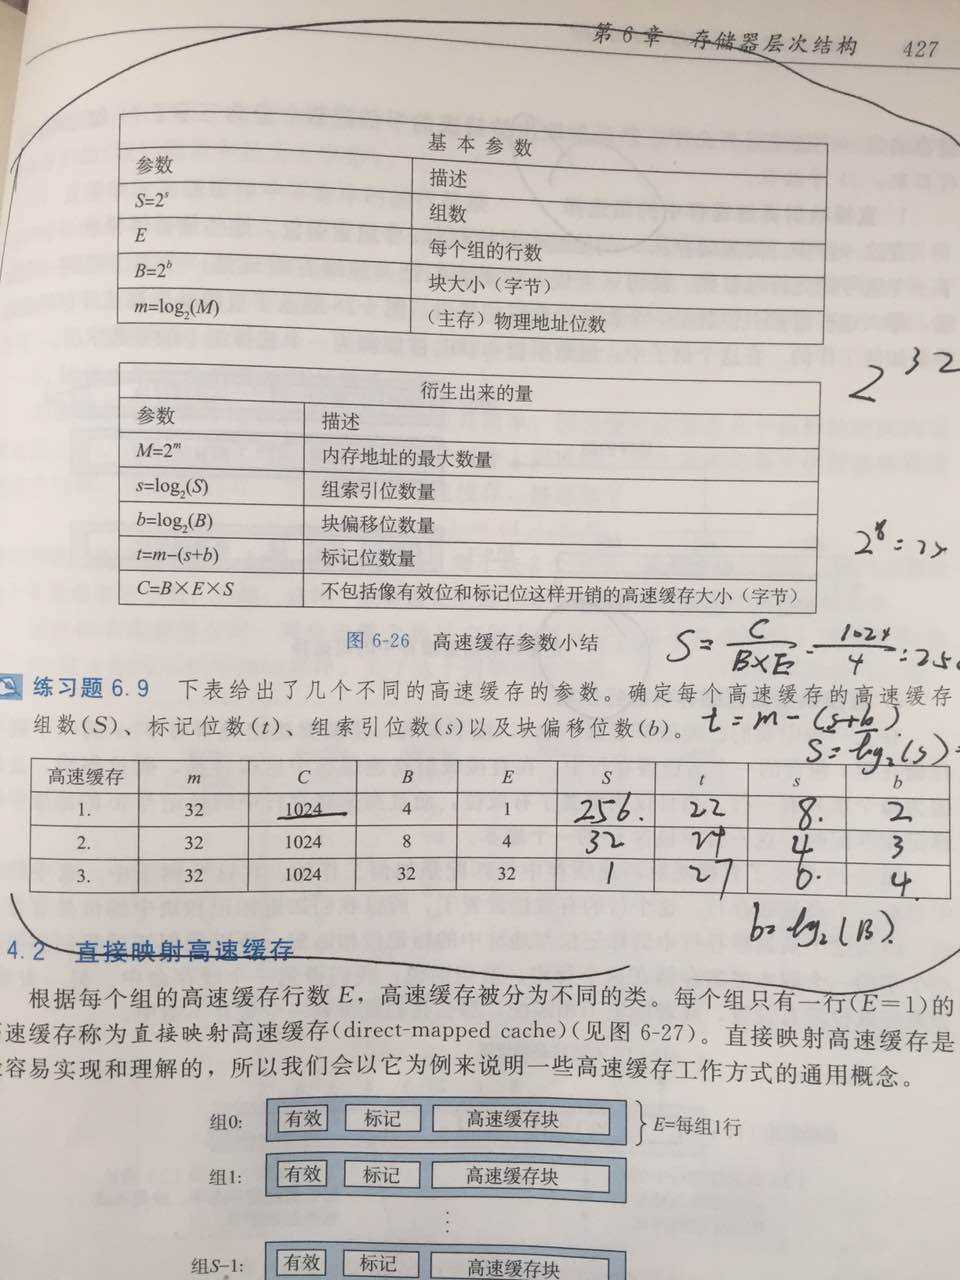 第6章 存储器层次结构 427
基本参数
参数 描述
S=2^s 组数
E 每个组的行数
B=2^b 块大小（字节）
m=log₂(M) （主存）物理地址位数
2^32
衍生出来的量
参数 描述
M=2^m 内存地址的最大数量
s=log₂(S) 组索引位数量
b=log₂(B) 块偏移位数量
t=m−(s+b) 标记位数量
C=B×E×S 不包括像有效位和标记位这样开销的高速缓存大小（字节）
2^8 =
图 6-26 高速缓存参数小结
S = C/(B×E) = 1024/4 =
练习题 6.9 下表给出了几个不同的高速缓存的参数。确定每个高速缓存的高速缓存
组数(S)、标记位数(t)、组索引位数(s)以及块偏移位数(b)。
t = m − (s+b).
S = log₂(s) =
高速缓存 m C B E S t s b
1. 32 1024 4 1 256. 22 8. 2
2. 32 1024 8 4 32 24 4 3
3. 32 1024 32 32 1 27 0. 4
b = log₂(B).
4.2 直接映射高速缓存
根据每个组的高速缓存行数 E，高速缓存被分为不同的类。每个组只有一行(E=1)的
速缓存称为直接映射高速缓存(direct-mapped cache)(见图 6-27)。直接映射高速缓存是
容易实现和理解的，所以我们会以它为例来说明一些高速缓存工作方式的通用概念。
组0: 有效 标记 高速缓存块 E=每组1行
组1: 有效 标记 高速缓存块
⋮
组S−1: 有效 标记 高速缓存块